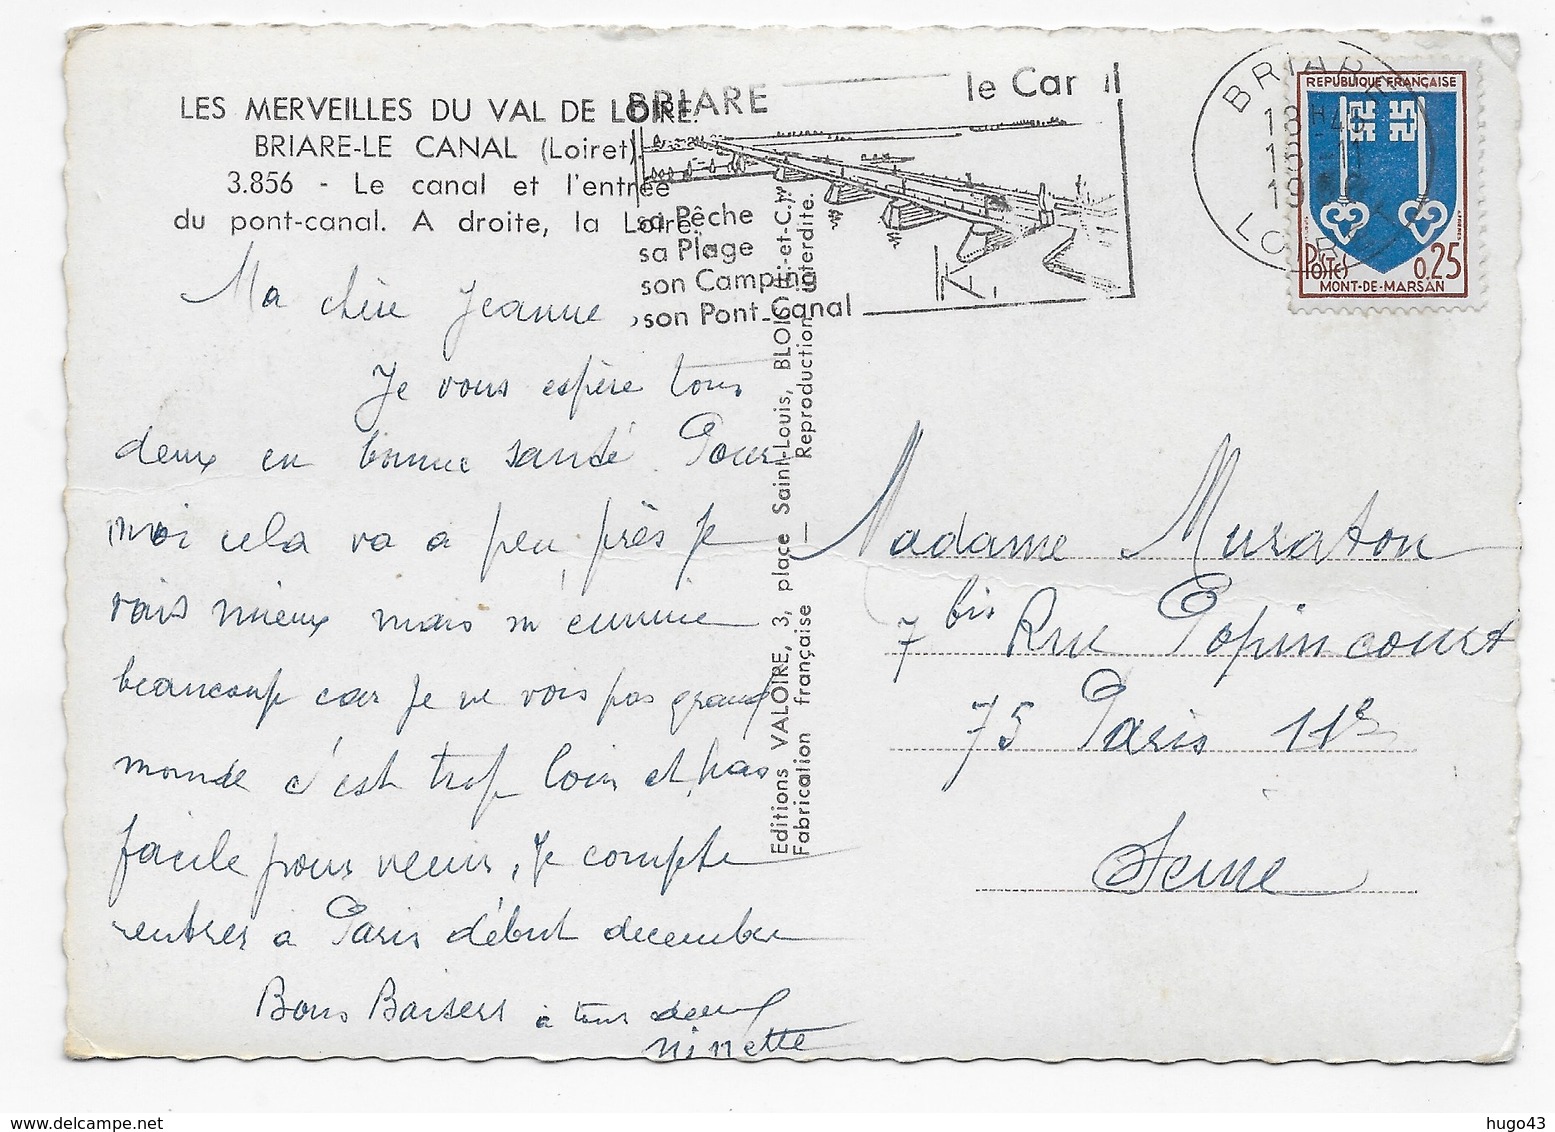 LES MERVEILLES DU VAL DE LOIRE
BRIARE-LE CANAL (Loiret).
3.856 - Le canal et l'entrée
du pont-canal. A droite, la Loire.
BRIARE
le Canal
sa Pêche
sa Plage
son Camping
son Pont-Canal
BRIARE
18H45
15-11
LOIRET
REPUBLIQUE FRANÇAISE
POSTES
0,25
MONT-DE-MARSAN
Ma chère Jeanne,
Je vous espère tous
deux en bonne santé. Pour
moi cela va a peu près je
vais mieux mais m'ennuie
beaucoup car je ne vois pas grand
monde c'est trop loin et pas
facile pour venir, je compte
rentrer à Paris début decembre
Bons Baisers à tous deux
Ninette
Editions VALOIRE, 3, place Saint-Louis, BLOIS (L.-et-C.)
Fabrication française — Reproduction interdite.
Madame Muraton
7 bis Rue Popincourt
75 Paris 11e
Seine
hugo43